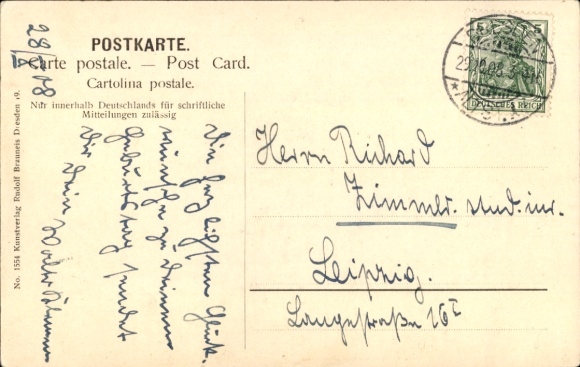 28/X 08
POSTKARTE.
Carte postale. — Post Card.
Cartolina postale.
Nur innerhalb Deutschlands für schriftliche
Mitteilungen zulässig
Die herzlichsten Glück-
wünsche zu Deinem
Geburtstag sendet
Dir Dein Walter
Herrn Richard
Zimmer. stud. iur.
Leipzig.
Langestraße 16 I
5 5
DEUTSCHES REICH
No. 1554 Kunstverlag Rudolf Brauneis Dresden 19.